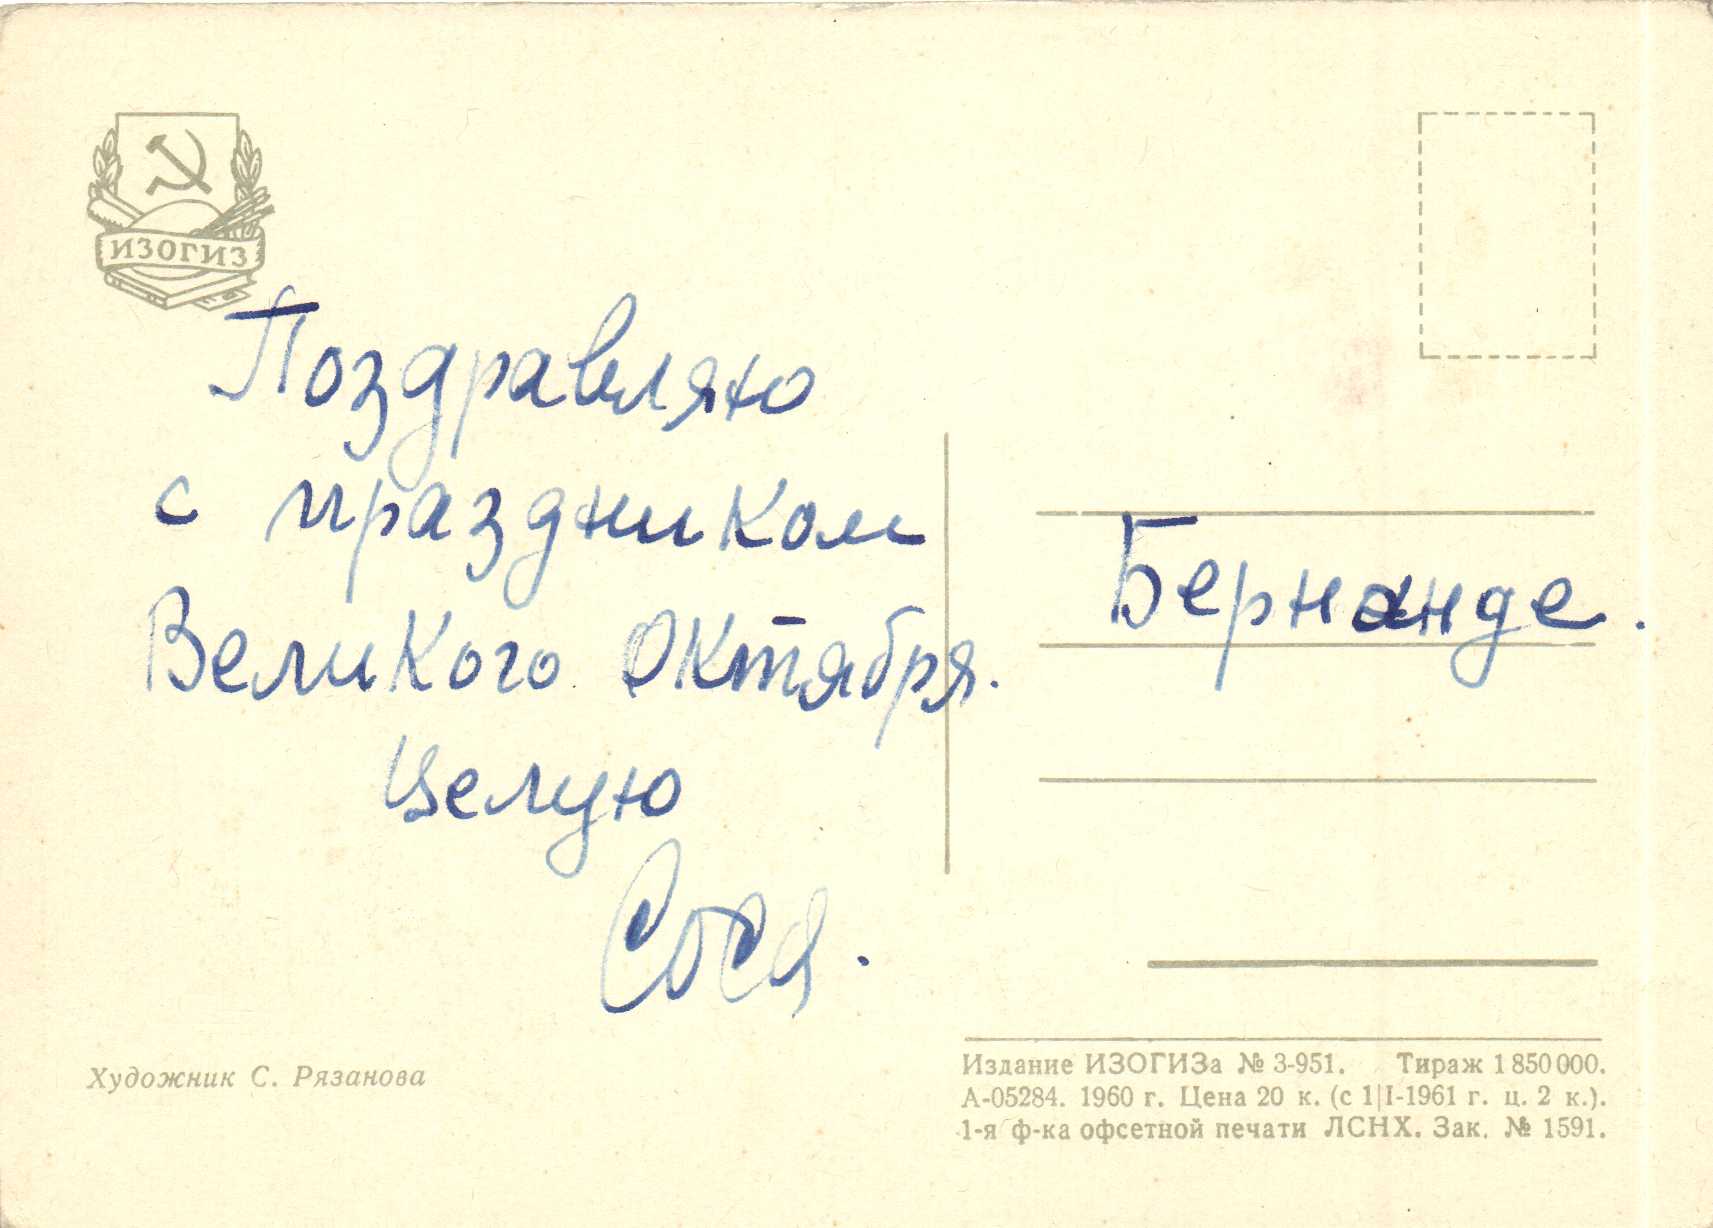 ИЗОГИЗ
Поздравляю
с праздником
Великого Октября.
Целую
Сося.
Бернанде.
Художник С. Рязанова
Издание ИЗОГИЗа № 3-951. Тираж 1 850 000.
А-05284. 1960 г. Цена 20 к. (с 1|I-1961 г. ц. 2 к.).
1-я ф-ка офсетной печати ЛСНХ. Зак. № 1591.